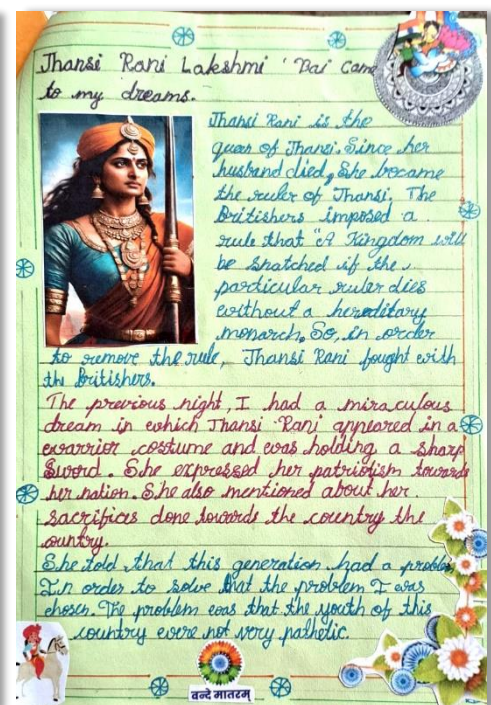 Jhansi Rani Lakshmi 'Bai came
to my dreams.
Jhansi Rani is the
queen of Jhansi. Since her
husband died, She became
the ruler of Jhansi. The
Britishers imposed a
rule that "A Kingdom will
be snatched if the
particular ruler dies
without a hereditary
monarch. So, in order
to remove the rule, Jhansi Rani fought with
the Britishers.
The previous night, I had a miraculous
dream in which Jhansi Rani appeared in a
warrior costume and was holding a sharp
Sword. She expressed her patriotism towards
her nation. She also mentioned about her
sacrifices done towards the country the
country.
She told that this generation had a problem
In order to solve that the problem I was
chosen. The problem was that the youth of this
country were not very pathetic.
वन्दे मातरम्